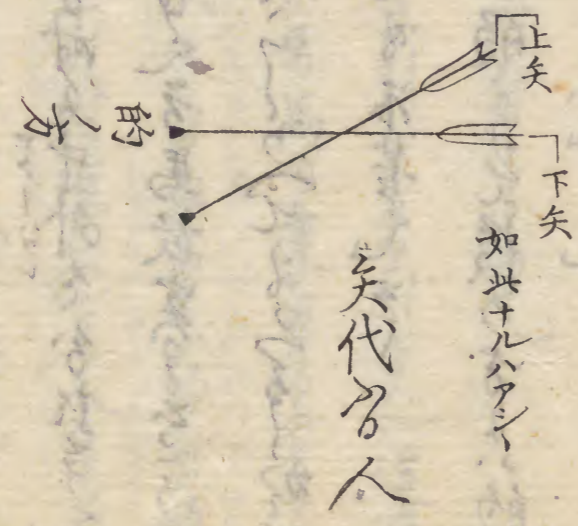 上矢
下矢
如此ナルハアシヽ
矢代 人
的ノ方